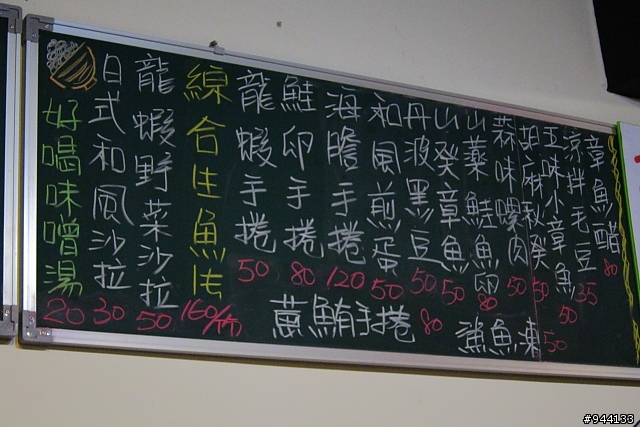 章魚醋 80
涼拌毛豆 35
五味小章魚 50
胡麻秋葵 50
蒜味螺肉 50
山藥鮭魚卵 80
山葵章魚 50
丹波黑豆 50
和風煎蛋 50
海膽手捲 120
鮭卵手捲 80
龍蝦手捲 50
綜合生魚片 160/份
龍蝦野菜沙拉 50
日式和風沙拉 30
好喝味噌湯 20
蔥鮪手捲 80
鯊魚凍 50
#944133